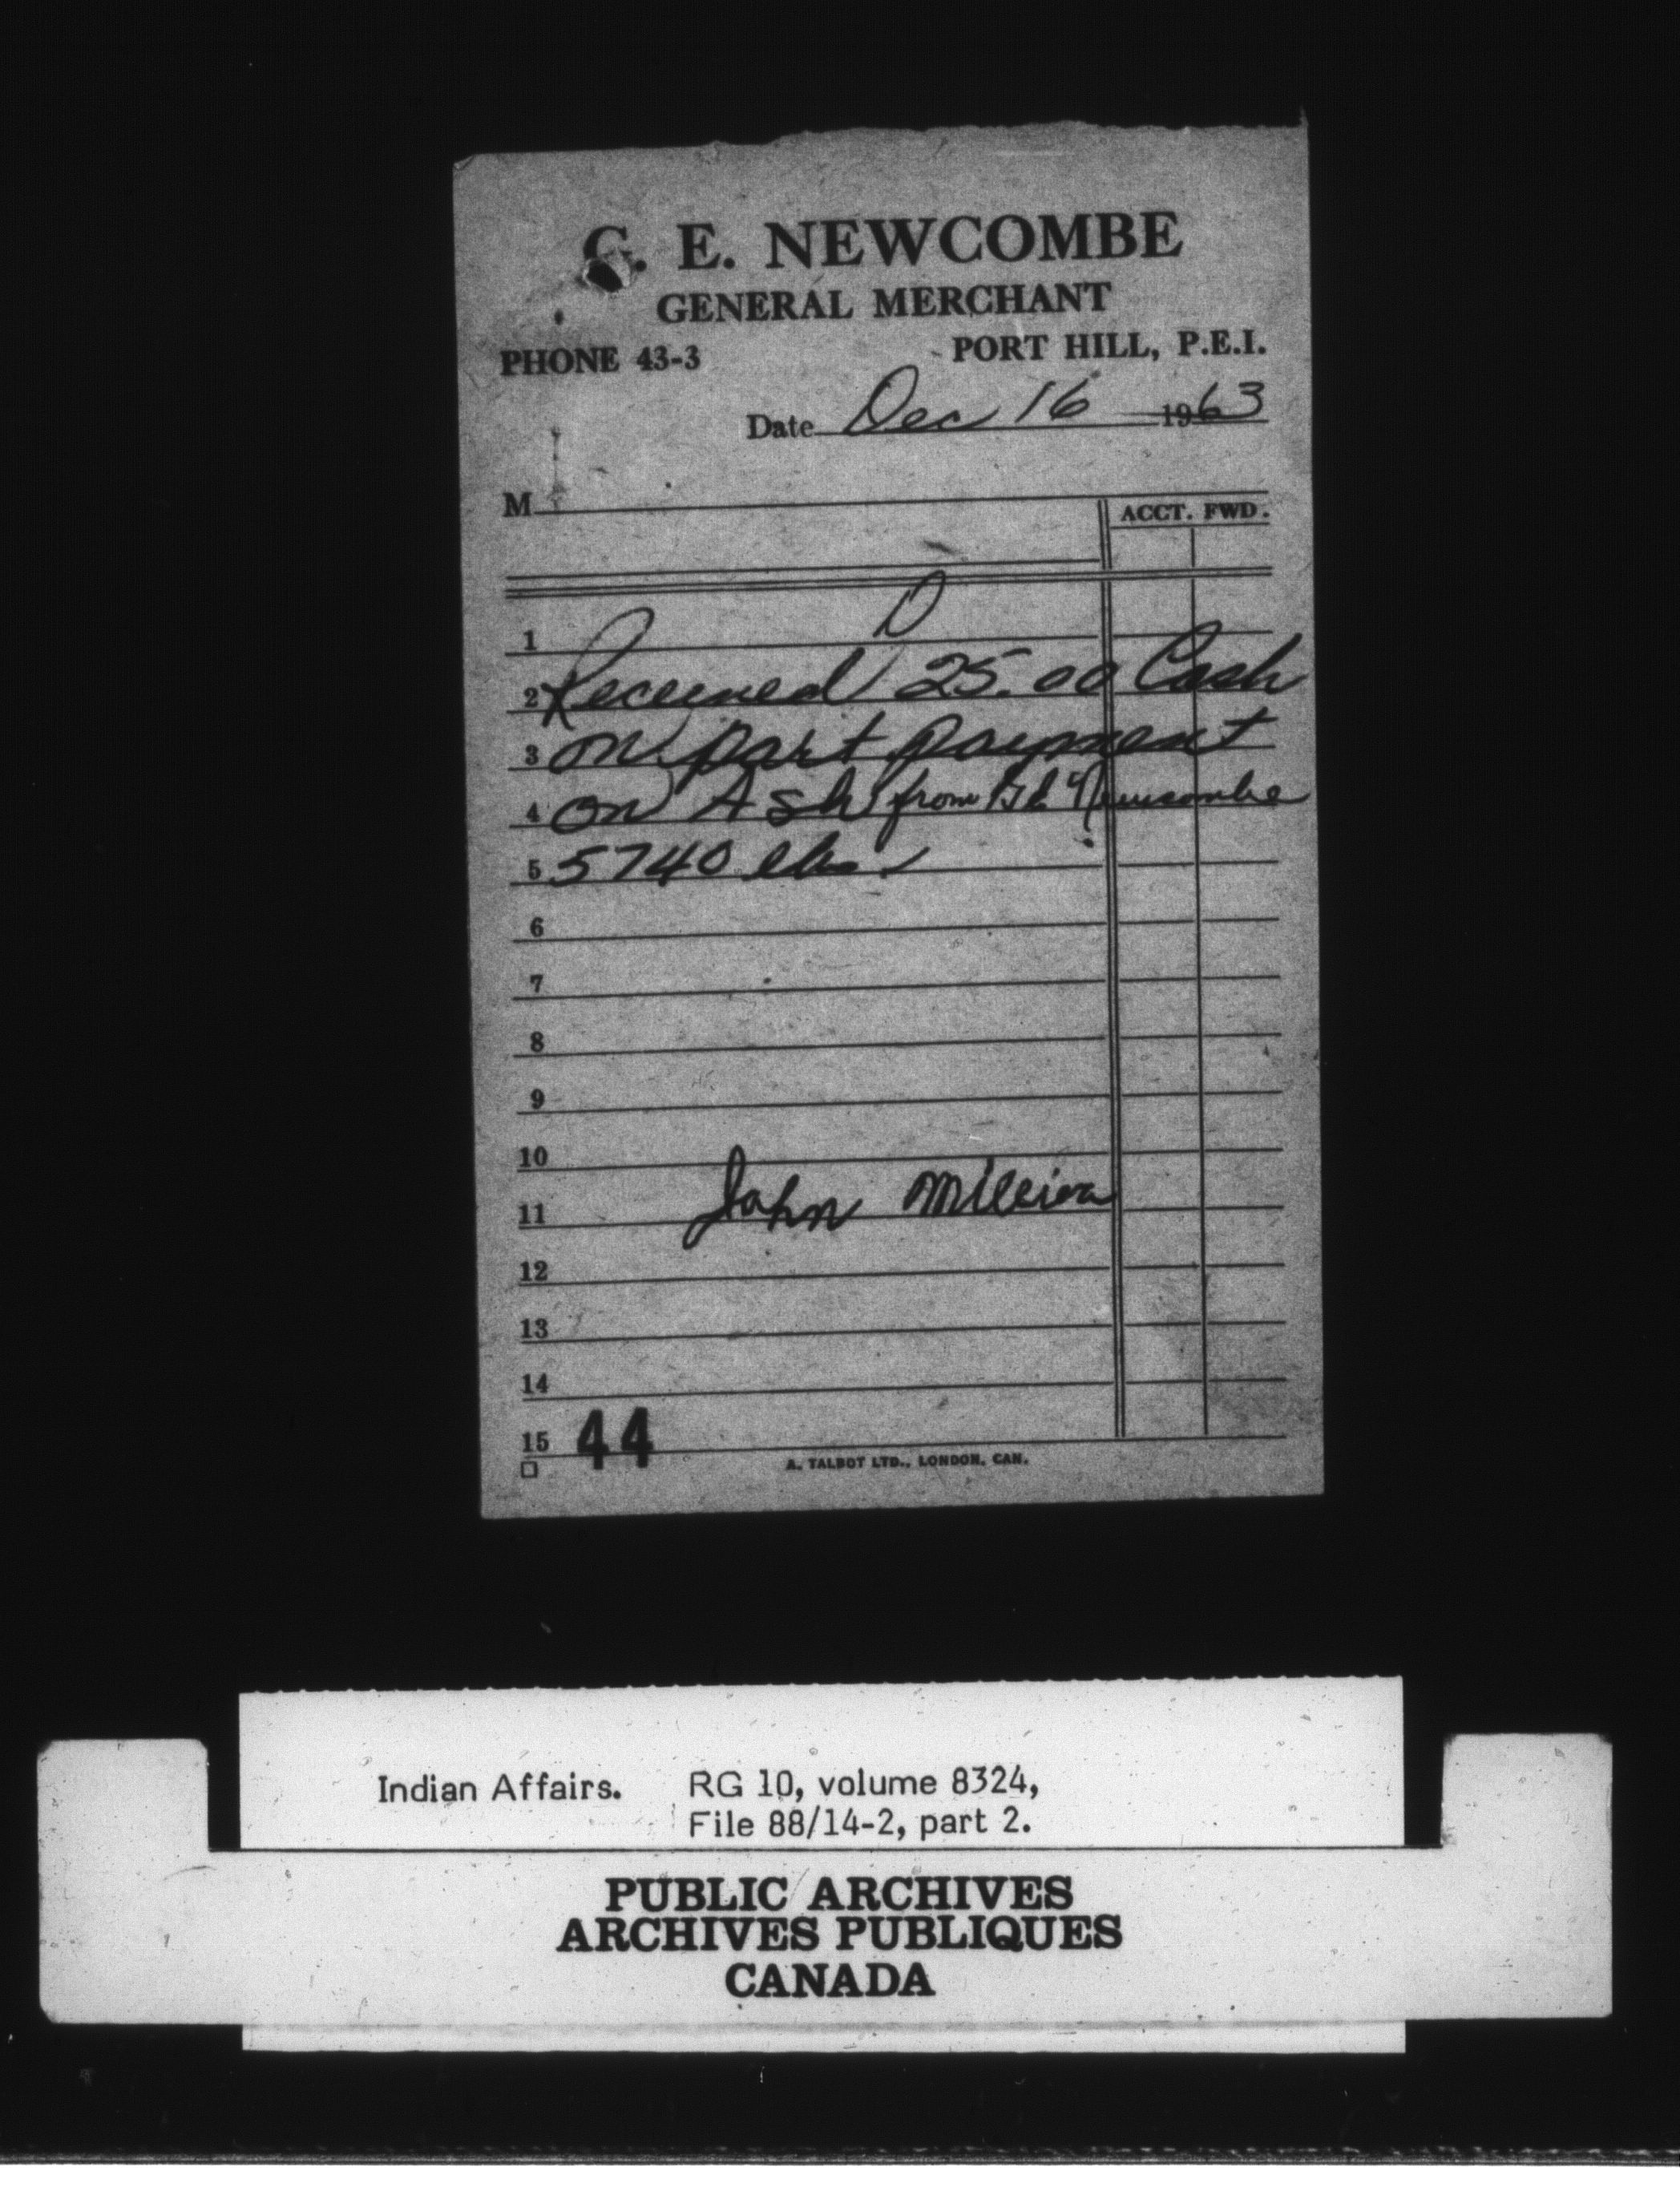 G. E. NEWCOMBE
GENERAL MERCHANT
PHONE 43-3 PORT HILL, P.E.I.
Date Dec 16 1963
M
ACCT. FWD.
1
2 Received 25.00 Cash
3 on part payment
4 on Ash from Newcombe
5 5740 lbs.
6
7
8
9
10
11 John
12
13
14
15 44
A. TALBOT LTD., LONDON, CAN.
Indian Affairs. RG 10, volume 8324,
File 88/14-2, part 2.
PUBLIC ARCHIVES
ARCHIVES PUBLIQUES
CANADA